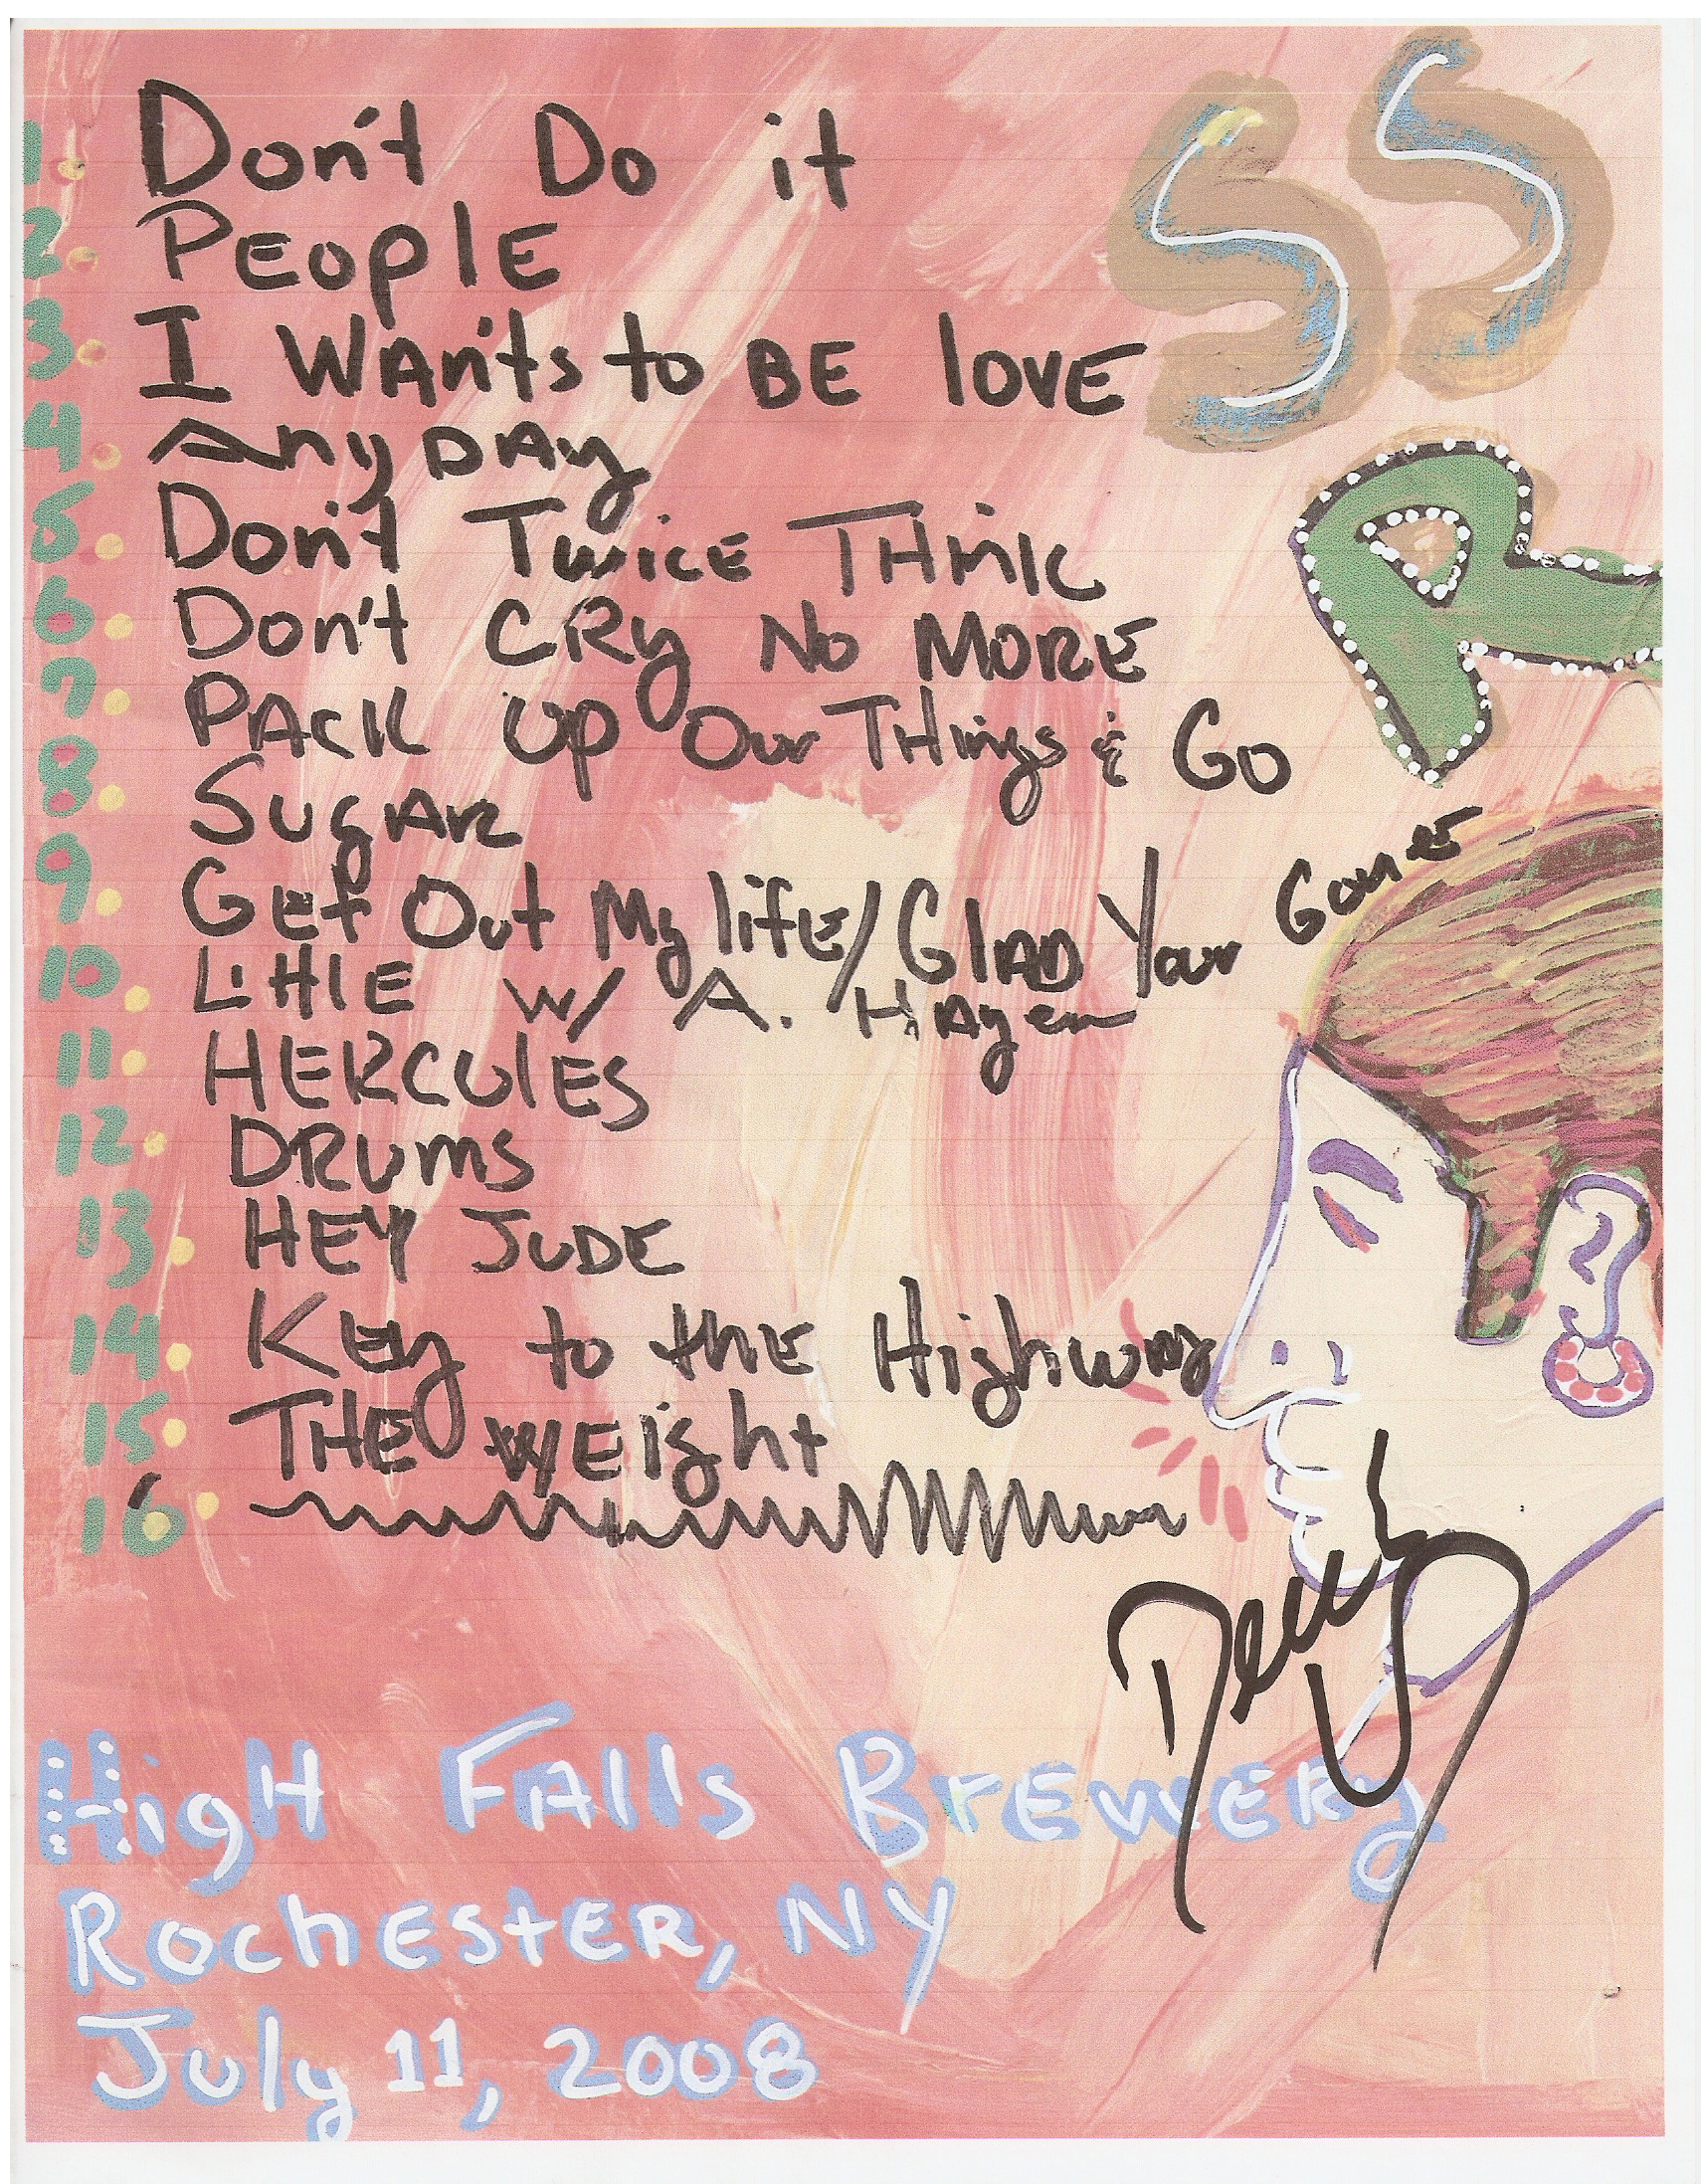 SS
R
1. Don't Do it
2. PEOplE
3. I WAn'ts to BE lOVE
4. AnyDAy
5. Don't TwicE THiNk
6. Don't CRy No MORE
7. PACk Up Our THings & Go
8. SUgAR
9. GEt Out My lifE/GlAD Your GonE
10. LittlE w/ A. HAgen
11. HERCUlES
12. DRUmS
13. HEY JUDE
14. KEy to thE HighwAy
15. THE wEight
16.
HigH FAlls BrEwERy
RochEstER, NY
July 11, 2008